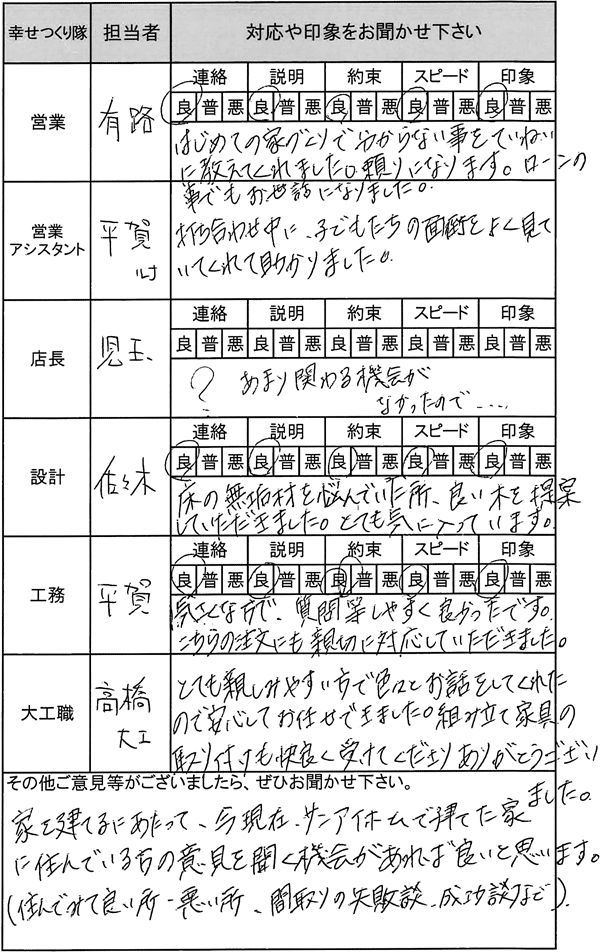 幸せつくり隊 担当者 対応や印象をお聞かせ下さい
営業 有路 連絡 説明 約束 スピード 印象
良 普 悪 良 普 悪 良 普 悪 良 普 悪 良 普 悪
はじめての家づくりで分からない事をていねい
に教えてくれました。頼りになります。ローンの
事でもお世話になりました。
営業
アシスタント 平賀
打ち合わせ中に、子どもたちの面倒をよく見て
いてくれて助かりました。
店長 児玉 連絡 説明 約束 スピード 印象
良 普 悪 良 普 悪 良 普 悪 良 普 悪 良 普 悪
? あまり関わる機会が
なかったので‥‥
設計 佐々木 連絡 説明 約束 スピード 印象
良 普 悪 良 普 悪 良 普 悪 良 普 悪 良 普 悪
床の無垢材を悩んでいた所、良い木を提案
していただきました。とても気に入っています。
工務 平賀 連絡 説明 約束 スピード 印象
良 普 悪 良 普 悪 良 普 悪 良 普 悪 良 普 悪
気さくな方で、質問等しやすく良かったです。
こちらの注文にも親切に対応していただきました。
大工職 高橋大工
とても親しみやすい方で色々とお話をしてくれた
ので安心してお任せできました。組み立て家具の
取り付けも快良く受けてくださりありがとうござい
ました。
その他ご意見等がございましたら、ぜひお聞かせ下さい。
家を建てるにあたって、今現在、サンアイホームで建てた家
に住んでいる方の意見を聞く機会があれば良いと思います。
(住んでみて良い所・悪い所、間取りの失敗談、成功談など).